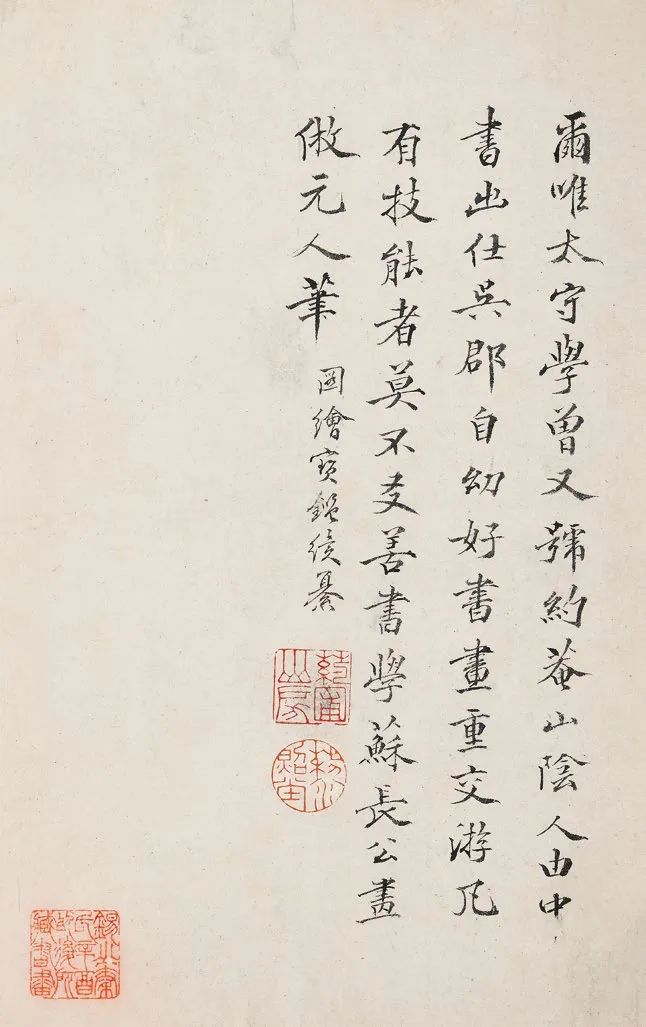 爾唯太守學曾又號約菴山陰人由中
書出仕吳郡自幼好書畫重交游凡
有技能者莫不友善書學蘇長公畫
倣元人筆 圖繪寶鑑續纂
錫山秦
氏辛酉
劫後所
藏書畫